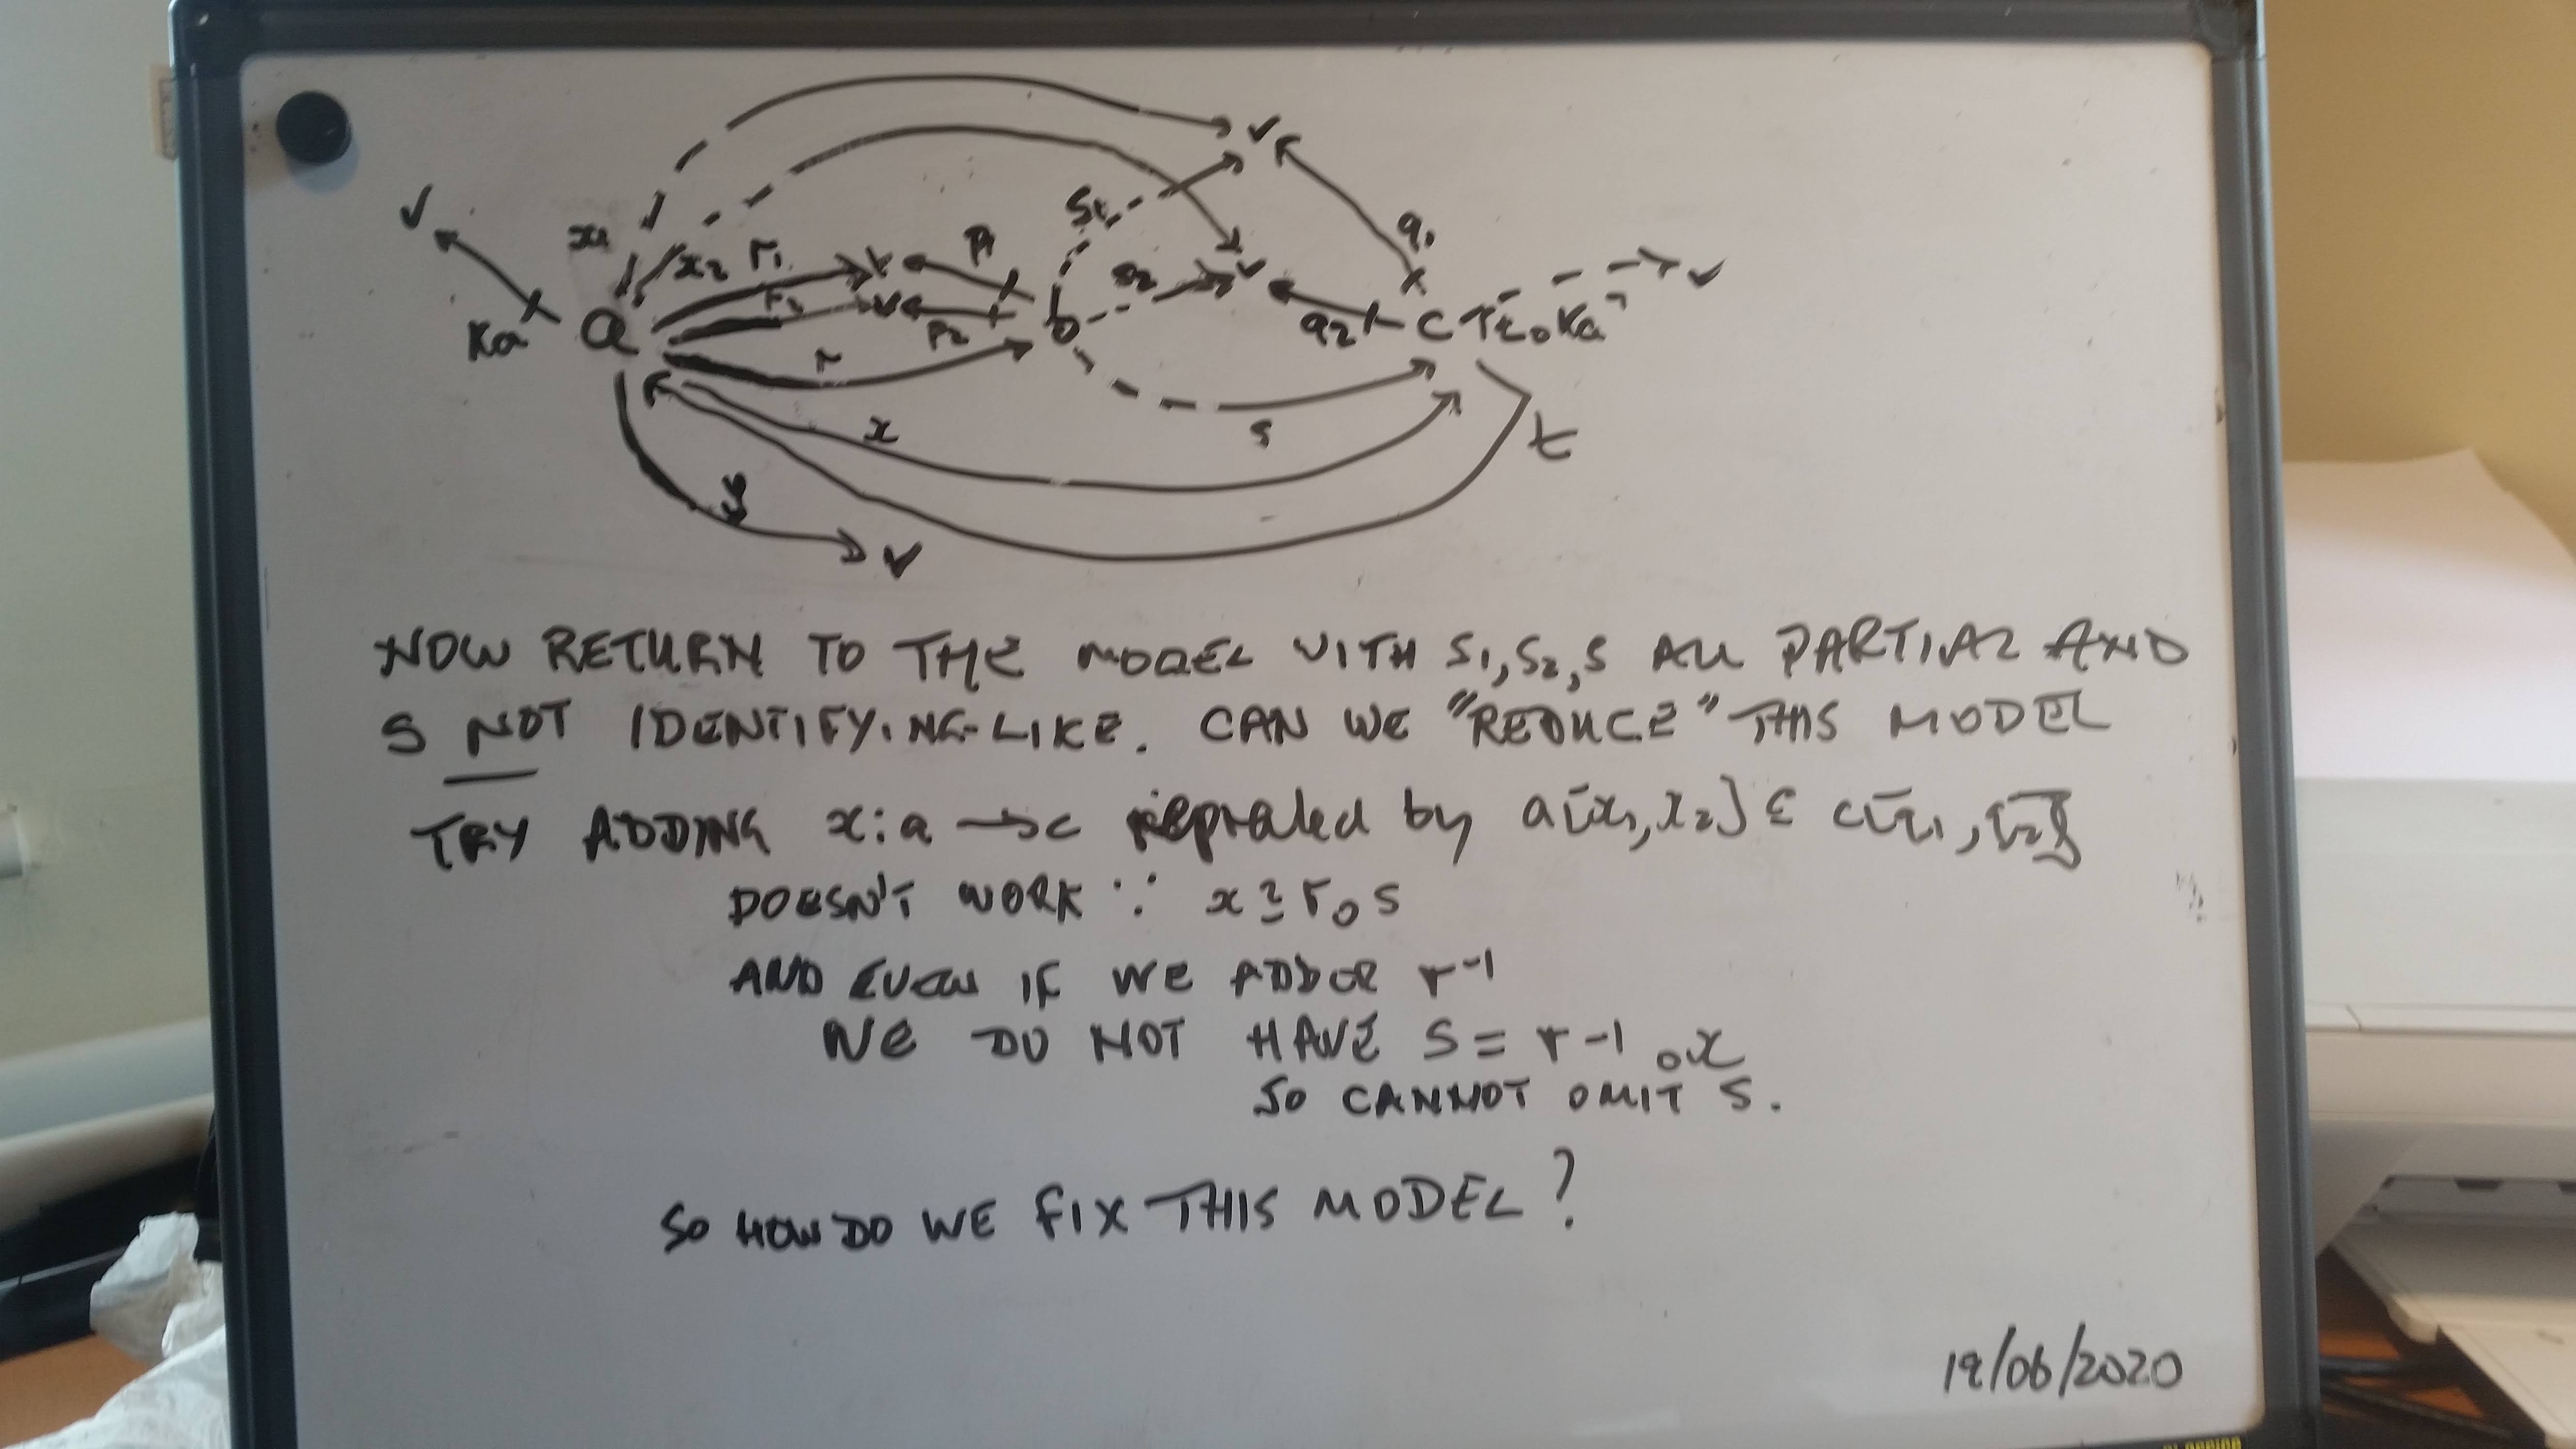 x1
x2
r1
r2
p1
p2
s1
s2
q1
q2
Ka
a
b
c
r
x
s
t
y
NOW RETURN TO THE MODEL WITH S1, S2, S ALL PARTIAL AND
S NOT IDENTIFYING-LIKE. CAN WE "REDUCE" THIS MODEL
TRY ADDING x: a → c by a[x1, x2] ⊆ c[q1, q2]
DOESN'T WORK ∵ x ⊇ r o s
AND EVEN IF WE r-1
WE DO NOT HAVE S = r-1 o x
SO CANNOT OMIT S.
SO HOW DO WE FIX THIS MODEL?
19/06/2020